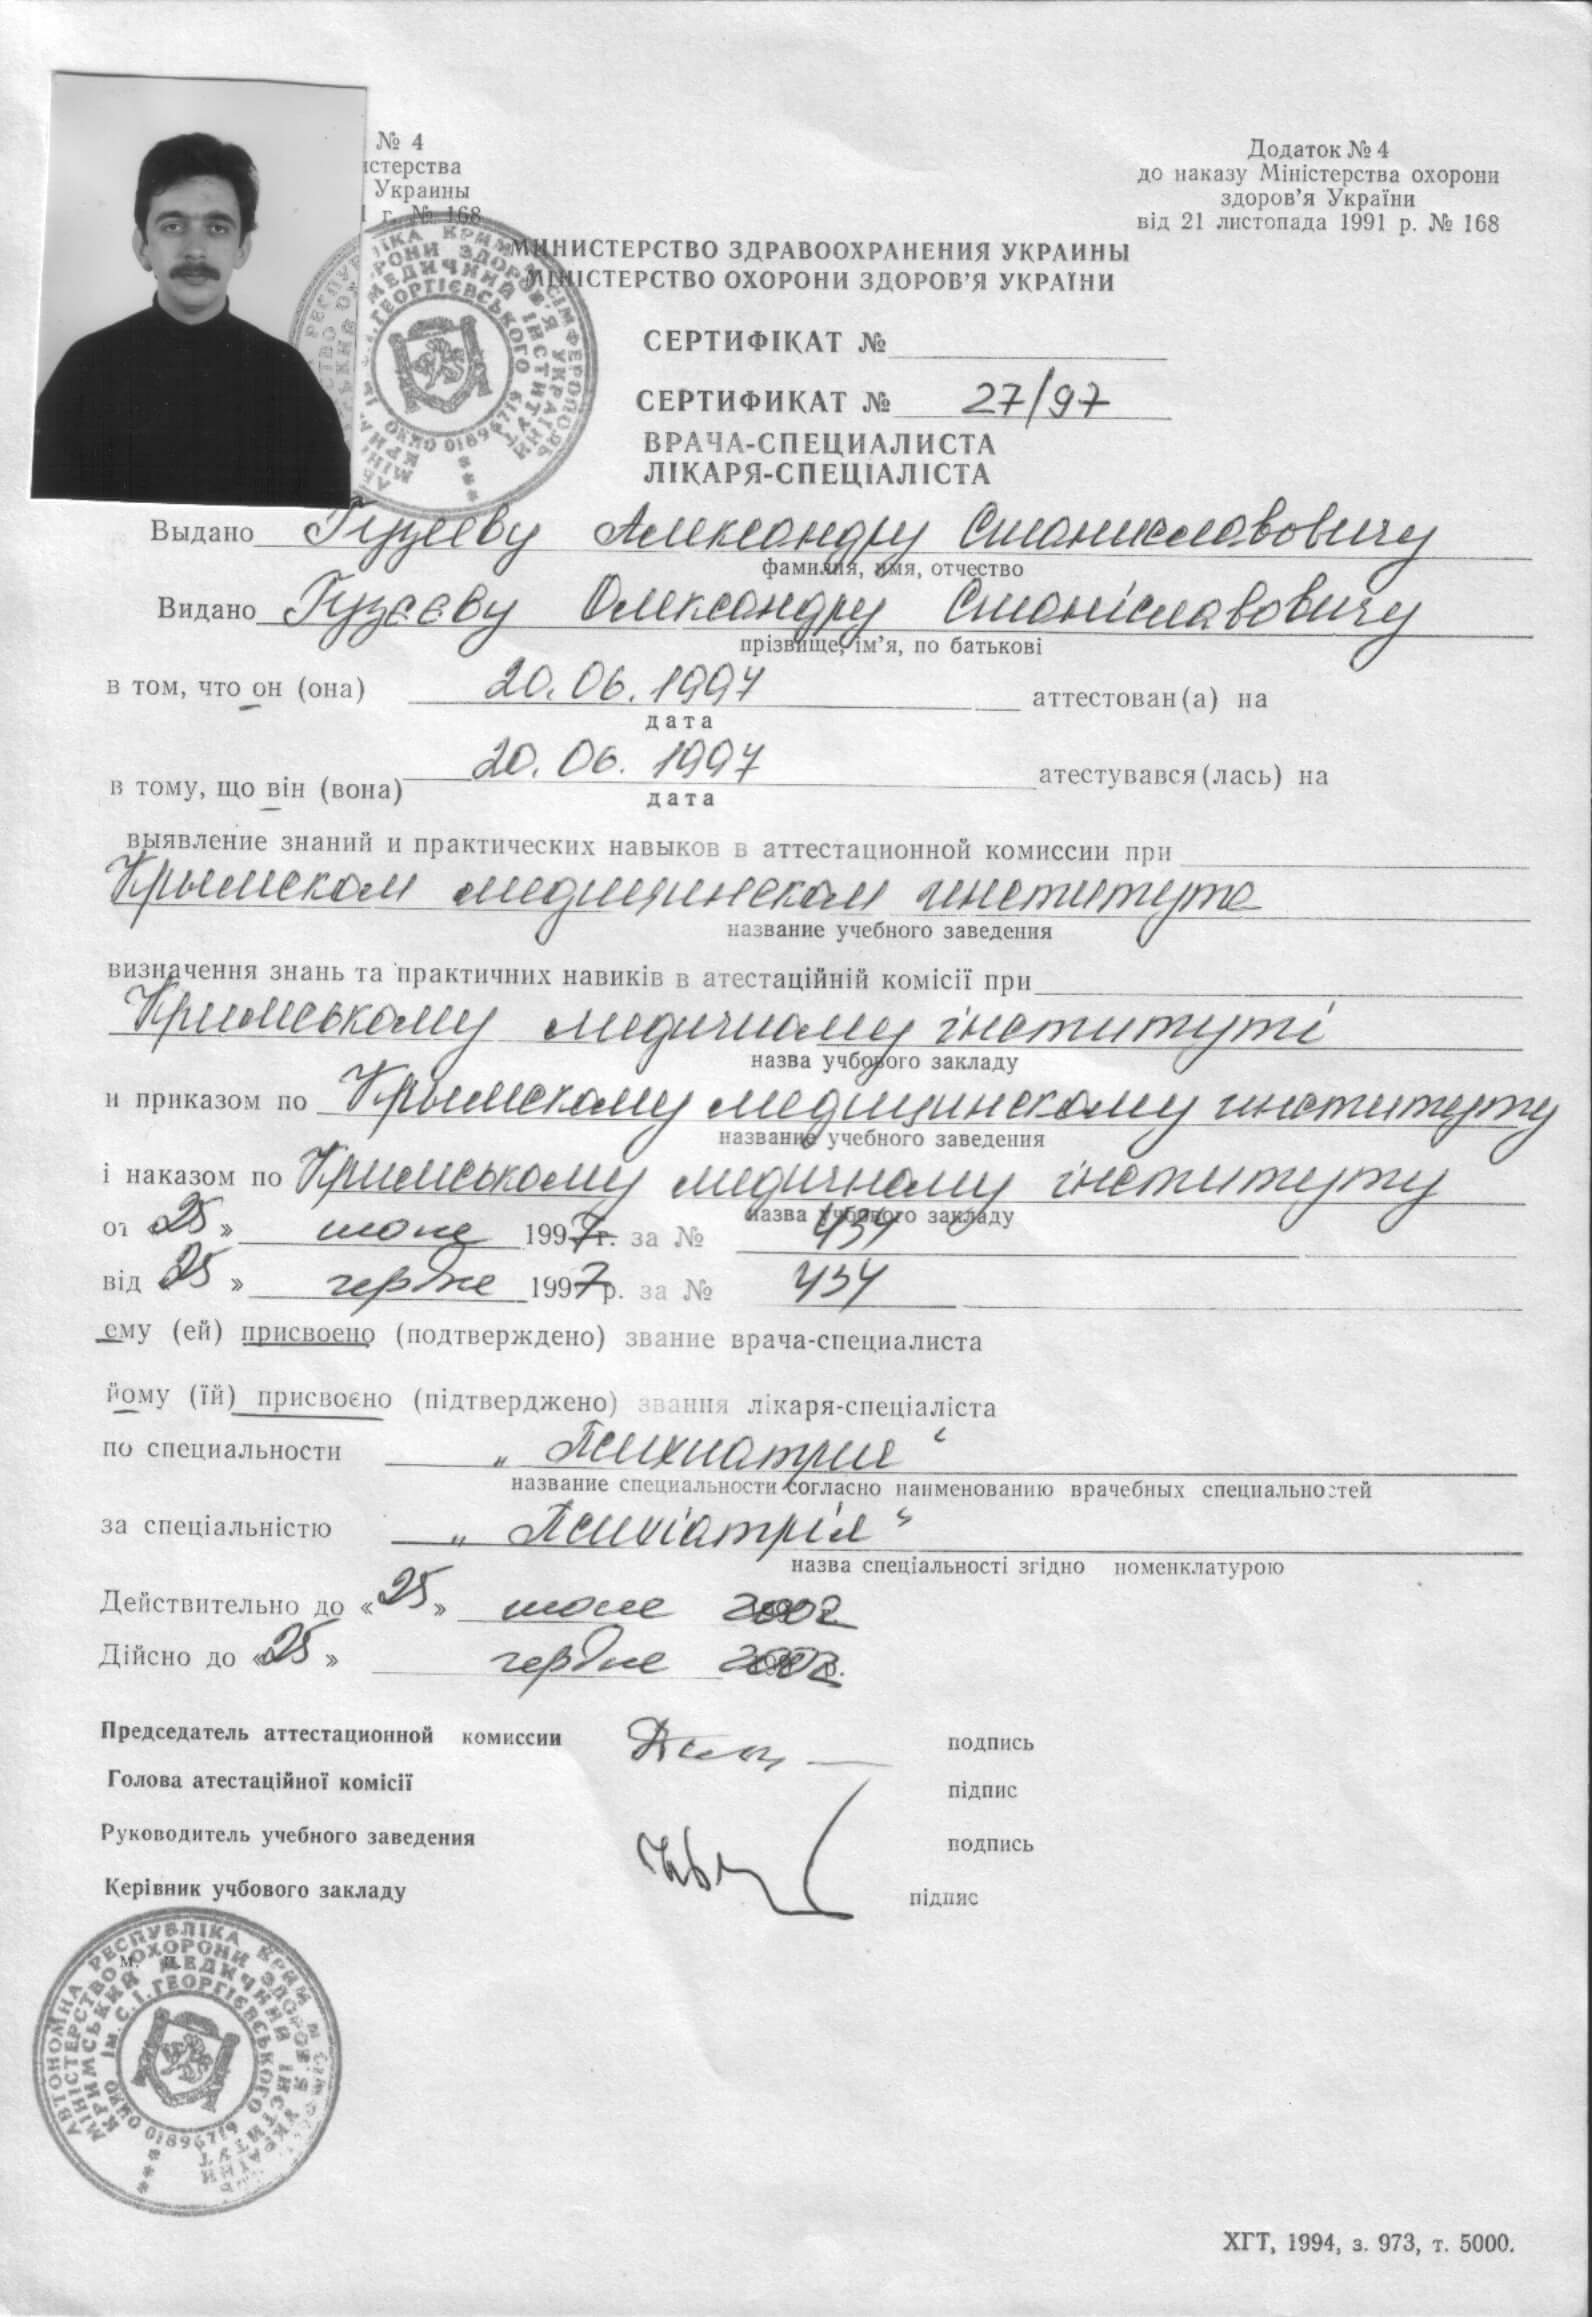 № 4
істерства
Украины
1 г. № 168
Додаток № 4
до наказу Міністерства охорони
здоров'я України
від 21 листопада 1991 р. № 168
МИНИСТЕРСТВО ЗДРАВООХРАНЕНИЯ УКРАИНЫ
МІНІСТЕРСТВО ОХОРОНИ ЗДОРОВ'Я УКРАЇНИ
СЕРТИФІКАТ №
СЕРТИФИКАТ № 27/97
ВРАЧА-СПЕЦИАЛИСТА
ЛІКАРЯ-СПЕЦІАЛІСТА
Выдано Гузееву Александру Станиславовичу
фамилия, имя, отчество
Видано Гузєєву Олександру Станіславовичу
прізвище, ім'я, по батькові
в том, что он (она) 20.06.1997 аттестован(а) на
дата
в тому, що він (вона) 20.06.1997 атестувався(лась) на
дата
выявление знаний и практических навыков в аттестационной комиссии при
Крымском медицинском институте
название учебного заведения
визначення знань та практичних навиків в атестаційній комісії при
Кримському медичному інституті
назва учбового закладу
и приказом по Крымскому медицинскому институту
название учебного заведения
і наказом по Кримському медичному інституту
назва учбового закладу
от «25» июня 1997 г. за № 434
від «25» червня 1997 р. за № 434
ему (ей) присвоено (подтверждено) звание врача-специалиста
йому (їй) присвоєно (підтверджено) звання лікаря-спеціаліста
по специальности „Психиатрия“
название специальности согласно наименованию врачебных специальностей
за спеціальністю „Психіатрія“
назва спеціальності згідно номенклатурою
Действительно до «25» июня 2002
Дійсно до «25» червня 2002 р.
Председатель аттестационной комиссии подпись
Голова атестаційної комісії підпис
Руководитель учебного заведения подпись
Керівник учбового закладу підпис
АВТОНОМНА РЕСПУБЛІКА КРИМ м.
МІНІСТЕРСТВО ОХОРОНИ ЗДОРОВ'Я УКРАЇНИ
КРИМСЬКИЙ МЕДИЧНИЙ ІНСТИТУТ
ім. С.І. ГЕОРГІЄВСЬКОГО
ОКПО 01896719
ХГТ, 1994, з. 973, т. 5000.